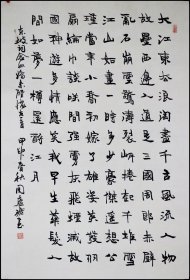 大江東去浪淘盡千古風流人物
故壘西邊人道是三國周郎赤壁
亂石崩雲驚濤裂岸捲起千堆雪
江山如畫一時多少豪傑遙想公
瑾當年小喬初嫁了雄姿英發羽
扇綸巾談笑間檣櫓灰飛煙滅故
國神遊多情應笑我早生華髮人
間如夢一樽還酹江月
東坡詞念奴嬌赤壁懷古
甲申春秋周